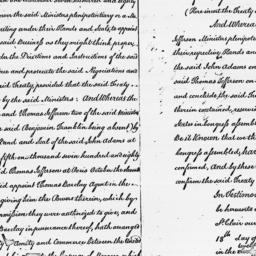 said Ministers plenipotentiary in a
acting under their Hands and Seals to appoint
said Business as they might think proper
the Directions and Instructions of the said
and prosecute the said Negociations and
said Treaty provided that the said Treaty
by the said Ministers: And Whereas the
and Thomas Jefferson two of the said Minister
said Benjamin Franklin being absent) by
and Seal of the said John Adams at
fifth one thousand seven hundred and eighty
said Thomas Jefferson at Paris October the
did appoint Thomas Barclay Agent in the
giving him the Powers therein, which by
commission they were authorized to give, and
Barclay in pursuance thereof, hath arranged
of Amity and Commerce between the United
(Here insert the Treaty
And Whereas
Jefferson Ministers plenipote
their respective Hands and
the said John Adams on
said Thomas Jefferson on
and conclude the said Treaty
therein contained, reserving
States in Congress assembled
Be it Known that we the
Congress assembled, have
confirmed, and by these
confirm the said Treaty
In Testimony
be hereunto
St Clair our
18th day of